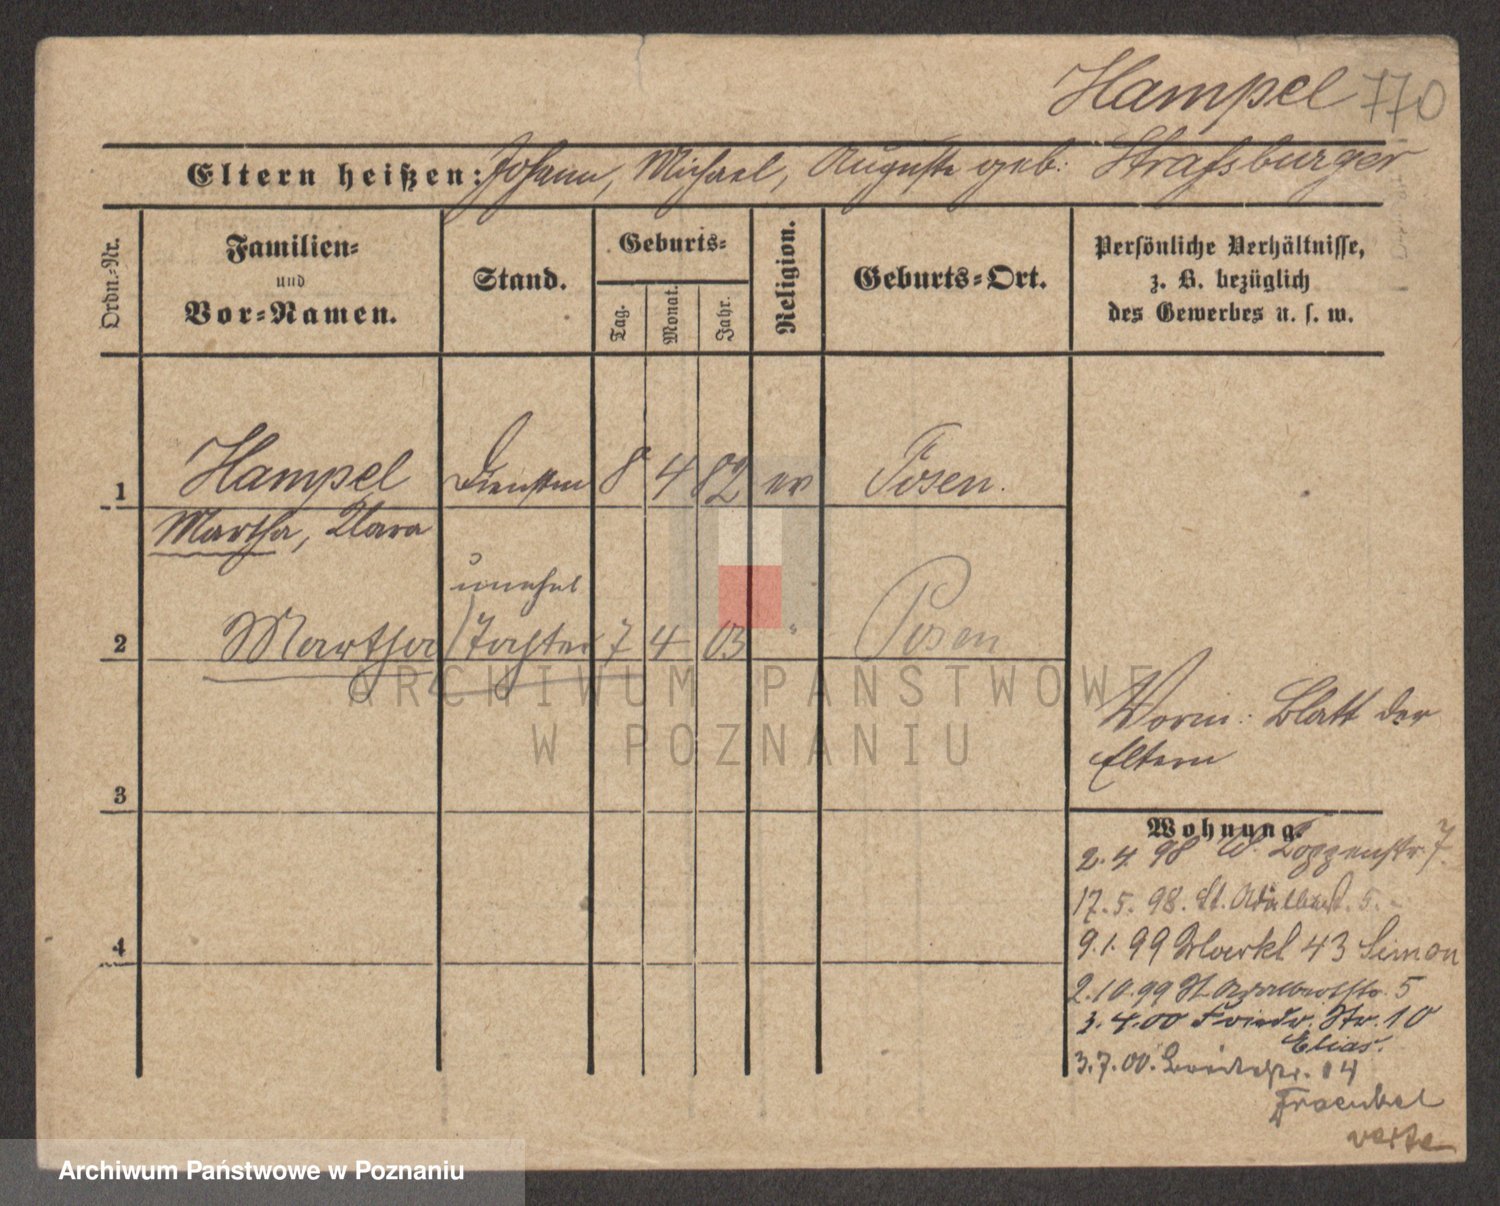 Hampel 770
Eltern heißen: Johann, Michael, Auguste geb: Straßburger
Ordn.-Nr.
Familien-
und
Vor-Namen.
Stand.
Geburts-
Tag.
Monat.
Jahr.
Religion.
Geburts-Ort.
Persönliche Verhältnisse,
z. B. bezüglich
des Gewerbes u. s. w.
1 Hampel Dienstm 8 4 82 ev Posen.
Martha, Clara
unehel
2 Martha Tochter 7 4 03 " Posen
ARCHIWUM PAŃSTWOWE
W POZNANIU
Vorm: Blatt der
Eltern
3
Wohnung.
2.4 98 W. 7.
17.5.98. St. Adalbert. 5.
4
9.1.99 Markt 43 Simon
2.10.99 St. Adalbertstr. 5
3.4.00 Friedr. Str. 10
Elias.
3.7.00. Breitestr. 14
Fraenkel
verte
Archiwum Państwowe w Poznaniu